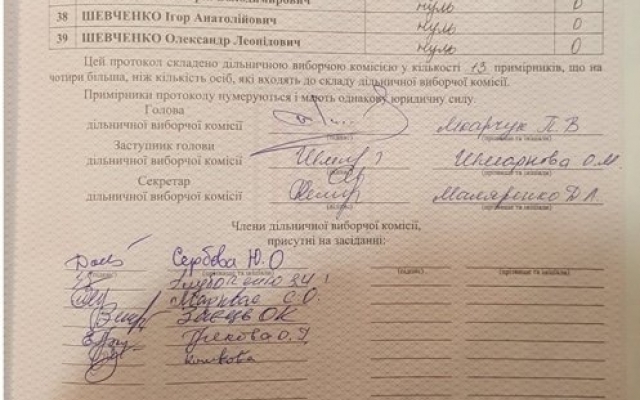 38 ШЕВЧЕНКО Ігор Анатолійович нуль 0
39 ШЕВЧЕНКО Олександр Леонідович нуль 0
Цей протокол складено дільничною виборчою комісією у кількості 13 примірників, що на
чотири більша, ніж кількість осіб, які входять до складу дільничної виборчої комісії.
Примірники протоколу нумеруються і мають однакову юридичну силу.
Голова
дільничної виборчої комісії П. В
(підпис) (прізвище та ініціали)
Заступник голови
дільничної виборчої комісії О. М.
(прізвище та ініціали)
Секретар
дільничної виборчої комісії Маляренко Д Л.
(підпис) (прізвище та ініціали)
Члени дільничної виборчої комісії,
присутні на засіданні:
Сербова Ю. О
(підпис) (прізвище та ініціали)
С. О.
Заєць О К